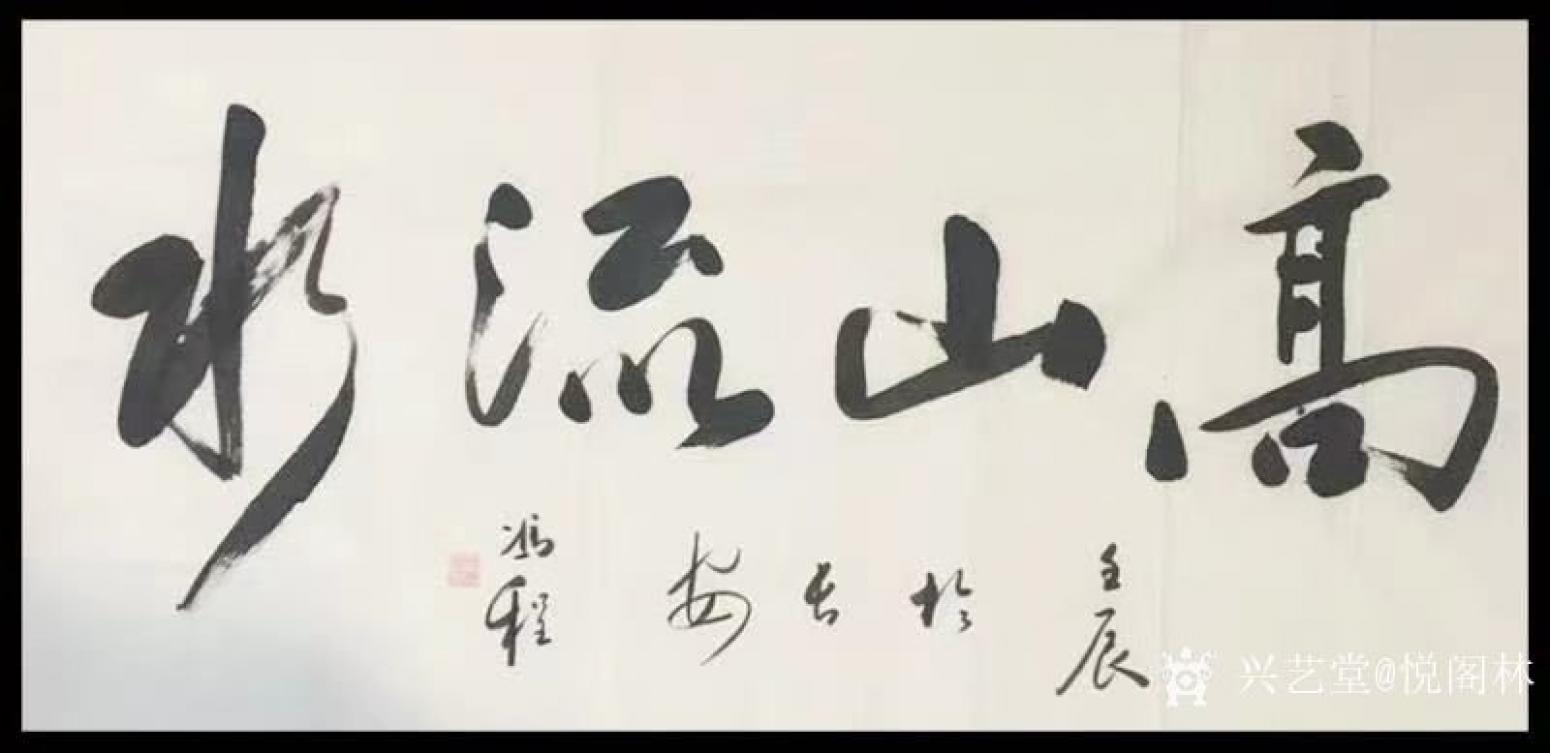 高山流水
壬辰
於長安
馮程
兴艺堂@悦阁林